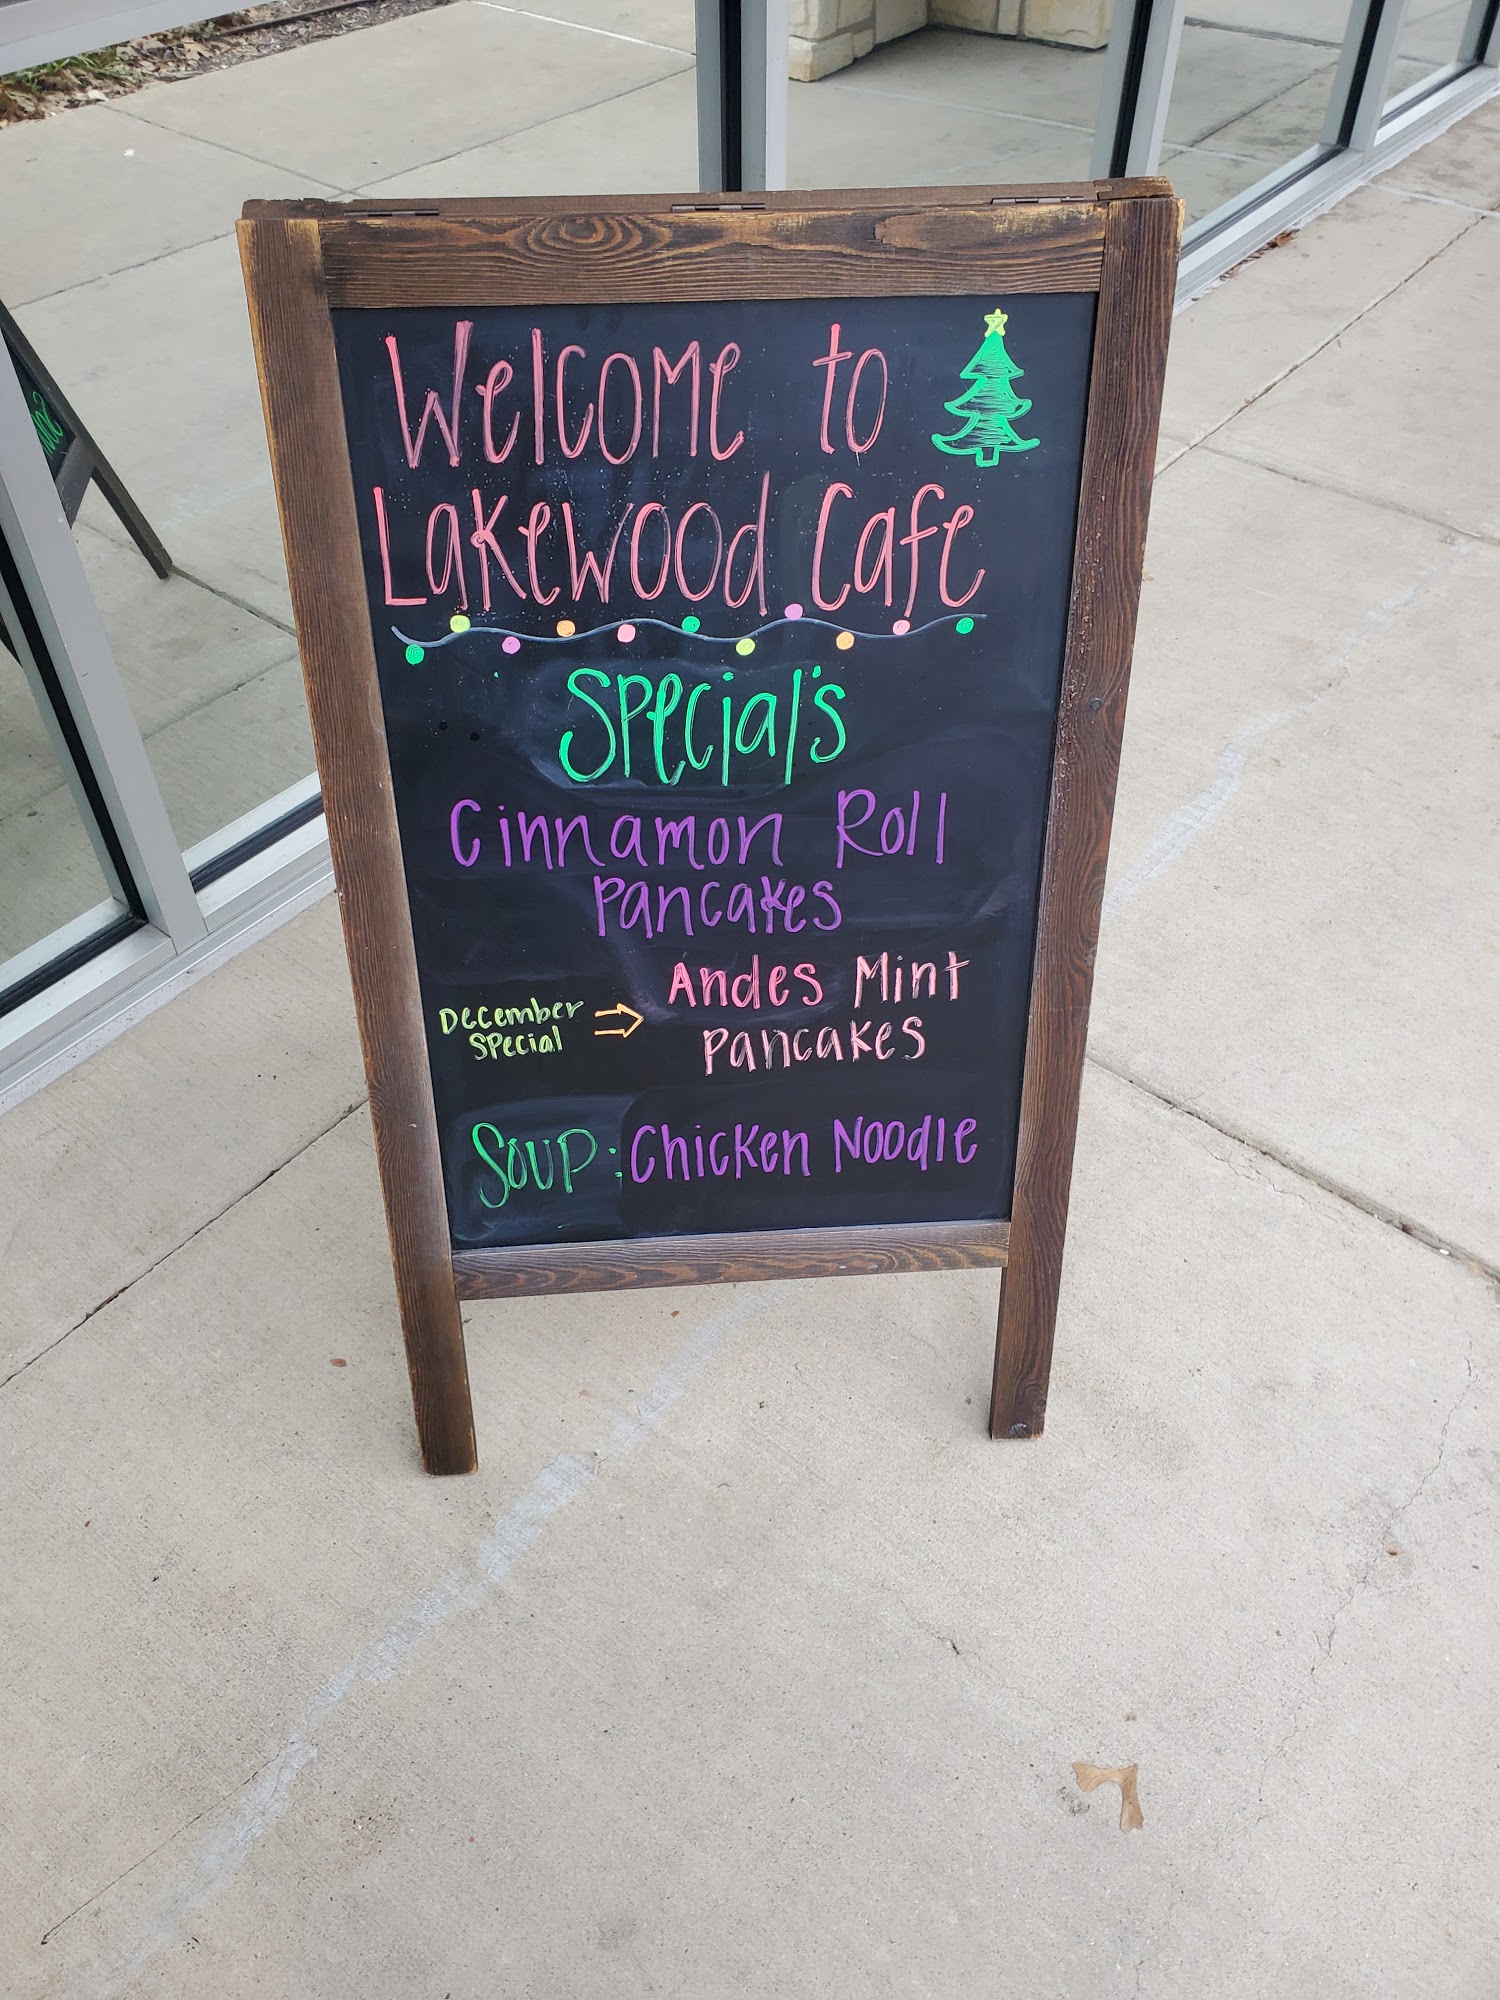 Welcome to
Lakewood Cafe
Special's
Cinnamon Roll
Pancakes
December
Special
Andes Mint
Pancakes
Soup: Chicken Noodle